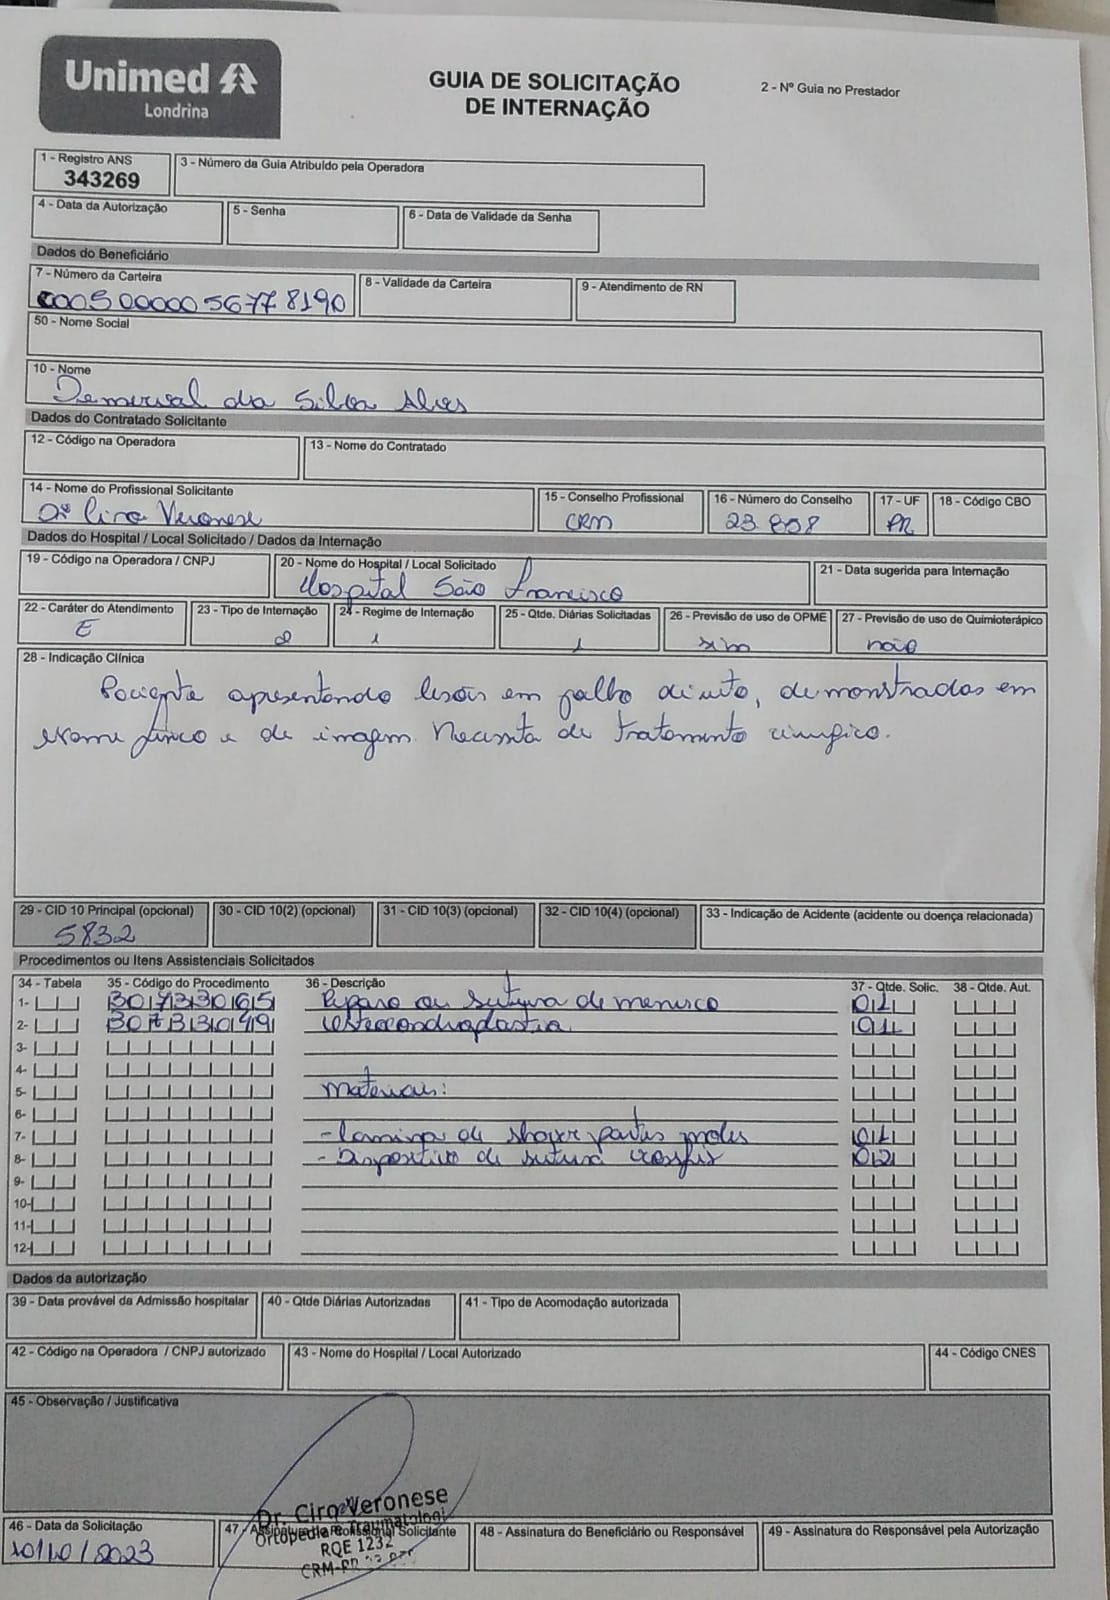 Unimed
Londrina
GUIA DE SOLICITAÇÃO
DE INTERNAÇÃO
2 - Nº Guia no Prestador
1 - Registro ANS
343269
3 - Número da Guia Atribuído pela Operadora
4 - Data da Autorização
5 - Senha
6 - Data de Validade da Senha
Dados do Beneficiário
7 - Número da Carteira
00050000056778190
8 - Validade da Carteira
9 - Atendimento de RN
50 - Nome Social
10 - Nome
Demerval da Silva Alves
Dados do Contratado Solicitante
12 - Código na Operadora
13 - Nome do Contratado
14 - Nome do Profissional Solicitante
Dr Ciro Veronese
15 - Conselho Profissional
CRM
16 - Número do Conselho
23 808
17 - UF
PR
18 - Código CBO
Dados do Hospital / Local Solicitado / Dados da Internação
19 - Código na Operadora / CNPJ
20 - Nome do Hospital / Local Solicitado
Hospital São Francisco
21 - Data sugerida para Internação
22 - Caráter do Atendimento
E
23 - Tipo de Internação
2
24 - Regime de Internação
1
25 - Qtde. Diárias Solicitadas
1
26 - Previsão de uso de OPME
sim
27 - Previsão de uso de Quimioterápico
não
28 - Indicação Clínica
Paciente apresentando lesões em joelho direito, demonstradas em
exame físico e de imagem. Necessita de tratamento cirúrgico.
29 - CID 10 Principal (opcional)
S832
30 - CID 10(2) (opcional)
31 - CID 10(3) (opcional)
32 - CID 10(4) (opcional)
33 - Indicação de Acidente (acidente ou doença relacionada)
Procedimentos ou Itens Assistenciais Solicitados
34 - Tabela 35 - Código do Procedimento 36 - Descrição 37 - Qtde. Solic. 38 - Qtde. Aut.
1- 30733065 Reparo ou sutura de menisco 01
2- 30733049 osteocondroplastia 01
3-
4-
5- Materiais:
6-
7- - Lamina de shaver partes moles 01
8- - Dispositivo de sutura crossfix 02
9-
10-
11-
12-
Dados da autorização
39 - Data provável da Admissão hospitalar
40 - Qtde Diárias Autorizadas
41 - Tipo de Acomodação autorizada
42 - Código na Operadora / CNPJ autorizado
43 - Nome do Hospital / Local Autorizado
44 - Código CNES
45 - Observação / Justificativa
Dr. Ciro Veronese
Ortopedia e Traumatologi
RQE 1232
CRM-PR
46 - Data da Solicitação
10/10/2023
47 - Assinatura do Profissional Solicitante
48 - Assinatura do Beneficiário ou Responsável
49 - Assinatura do Responsável pela Autorização